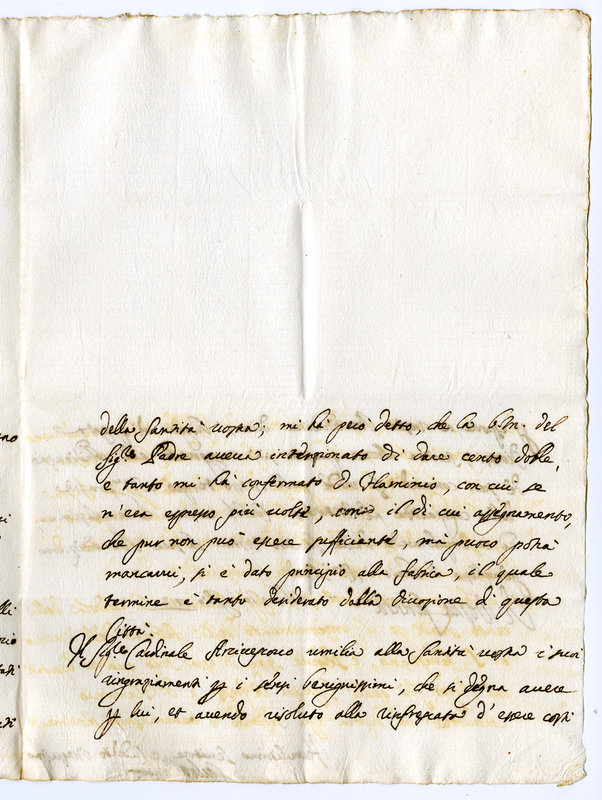 della Santità vostra; mi hà però detto, che la b. m. del
Sig.re Padre aveva intenzionato di dare cento doble,
e tanto mi hà confermato D. Flaminio, con cui se
n'era espresso più volte, con il di cui assegnamento,
che pur non può essere sufficiente, mà puoco potrà
mancarvi, si è dato principio alla fabrica, il quale
termine è tanto desiderato dalla divozione di questa
Città.
Il Sig.re Cardinale Arcivescovo umilia alla Santità vostra i suoi
ringraziamenti per i sensi benignissimi, che si degna avere
per lui, et avendo risoluto alla rinfrescata d'essere costì